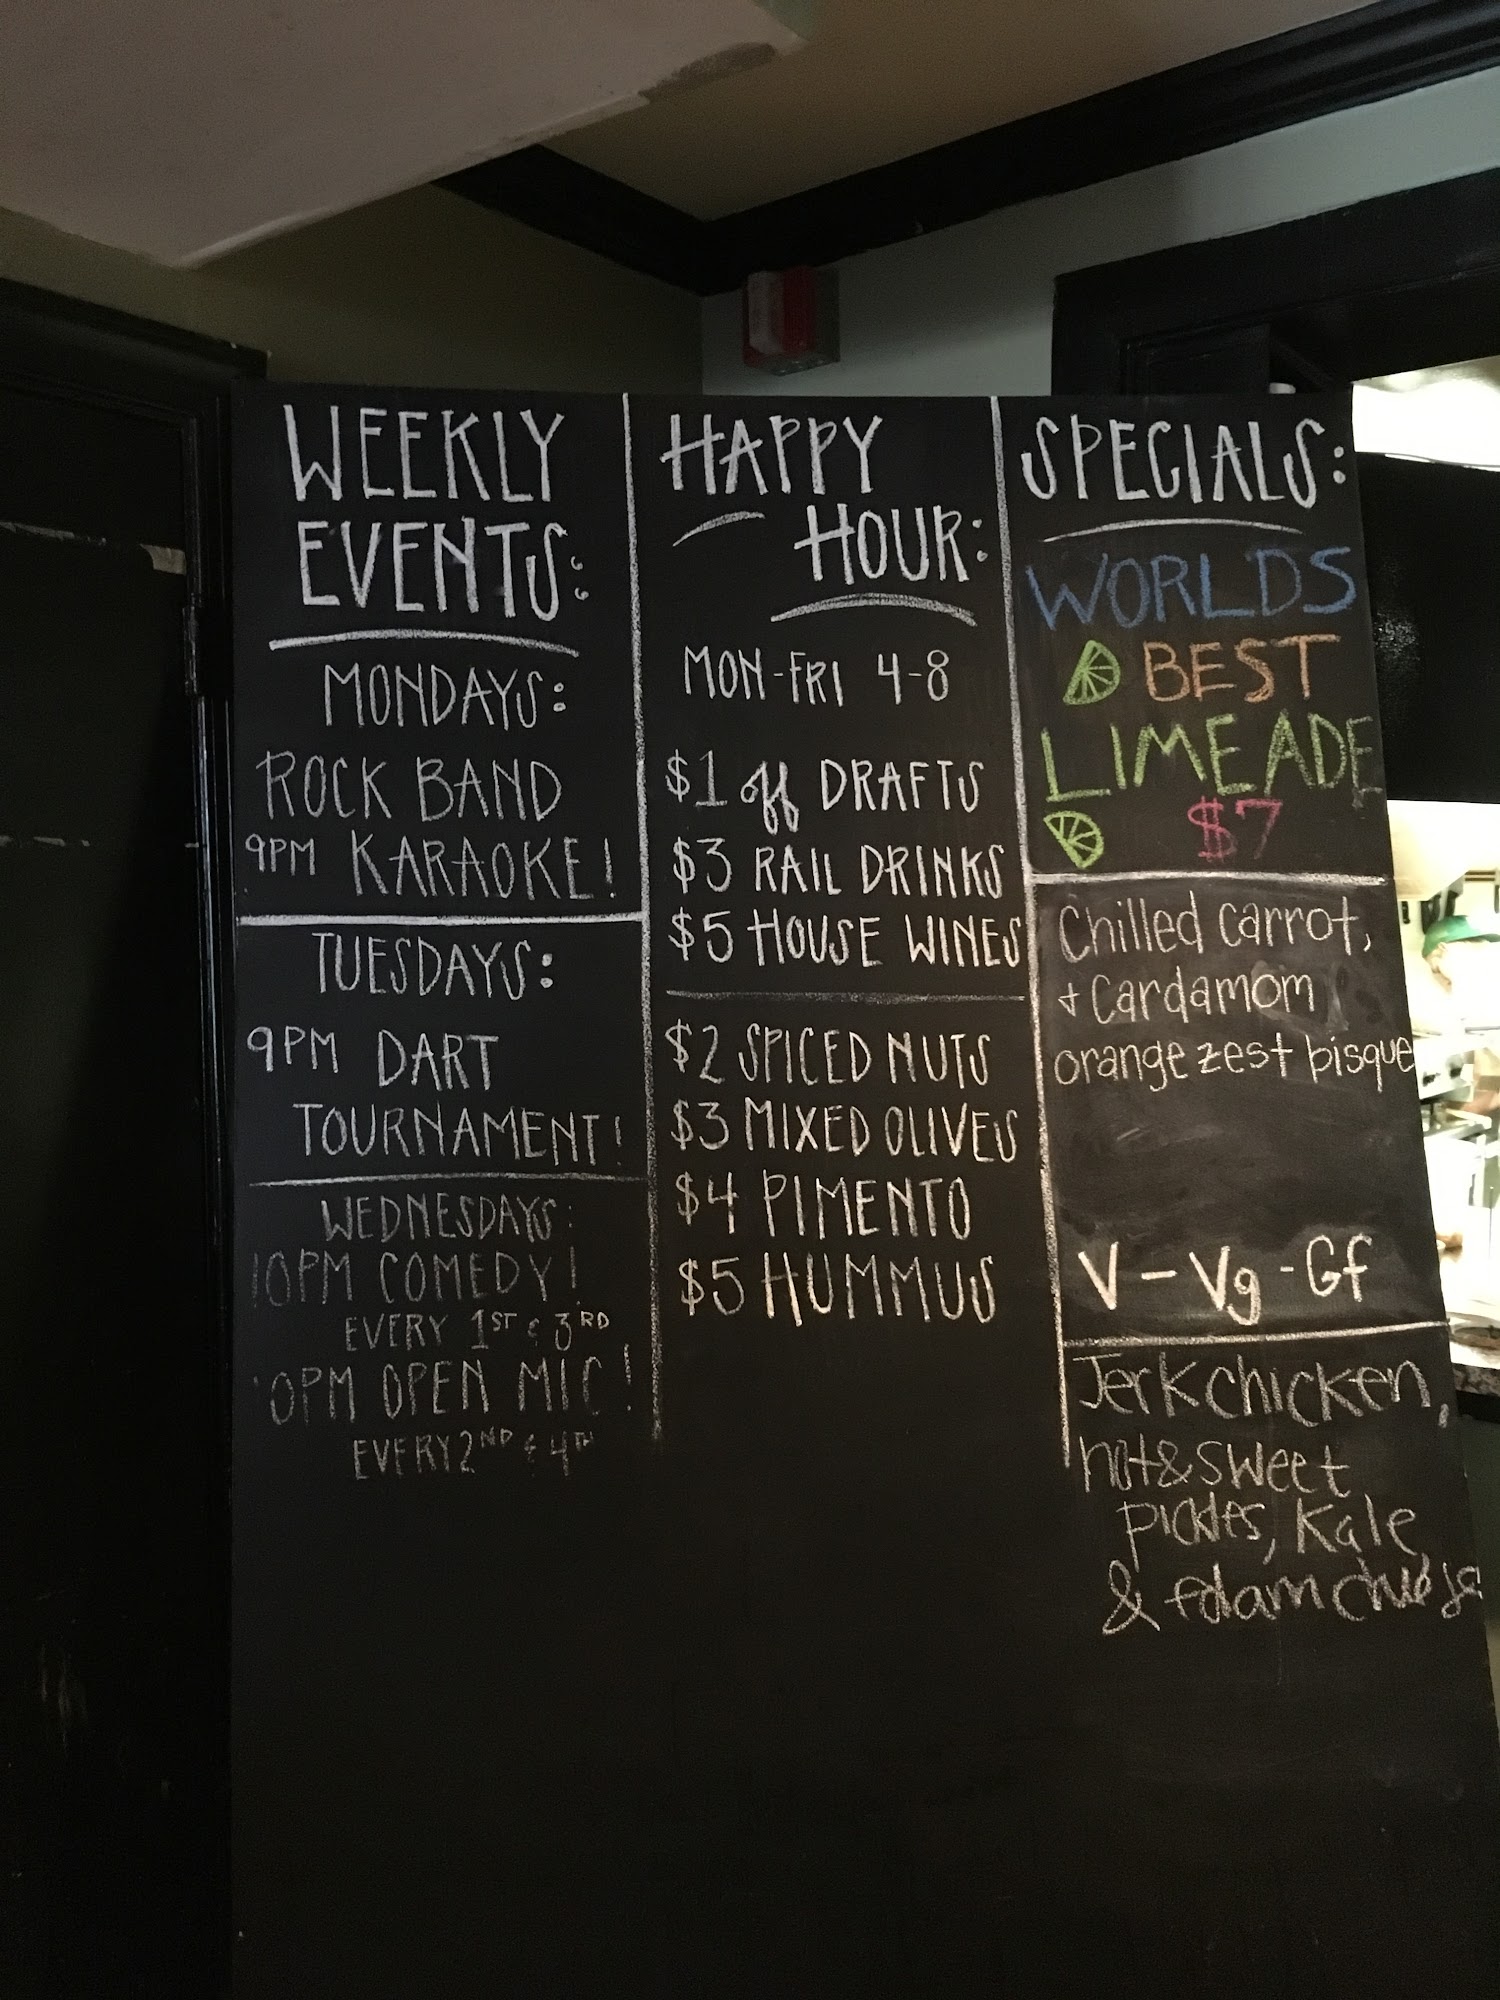 WEEKLY
EVENTS:
MONDAYS:
ROCK BAND
9PM KARAOKE!
TUESDAYS:
9PM DART
TOURNAMENT!
WEDNESDAYS:
10PM COMEDY!
EVERY 1ST & 3RD
10PM OPEN MIC!
EVERY 2ND & 4TH
HAPPY
HOUR:
MON-FRI 4-8
$1 off DRAFTS
$3 RAIL DRINKS
$5 HOUSE WINES
$2 SPICED NUTS
$3 MIXED OLIVES
$4 PIMENTO
$5 HUMMUS
SPECIALS:
WORLDS
BEST
LIMEADE
$7
Chilled carrot,
+ Cardamom
orange zest bisque
V - Vg - Gf
Jerk chicken,
hot & sweet
pickles, Kale
&